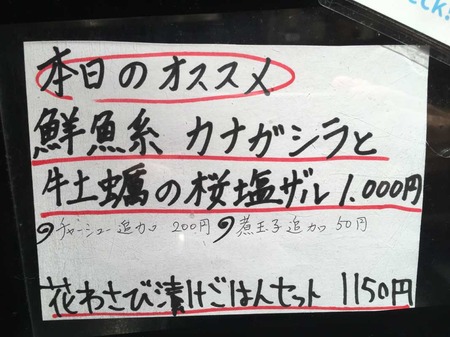 本日のオススメ
鮮魚系 カナガシラと
牡蠣の桜塩ザル 1.000円
チャーシュー追加 200円 煮玉子追加 50円
花わさび漬けごはんセット 1150円